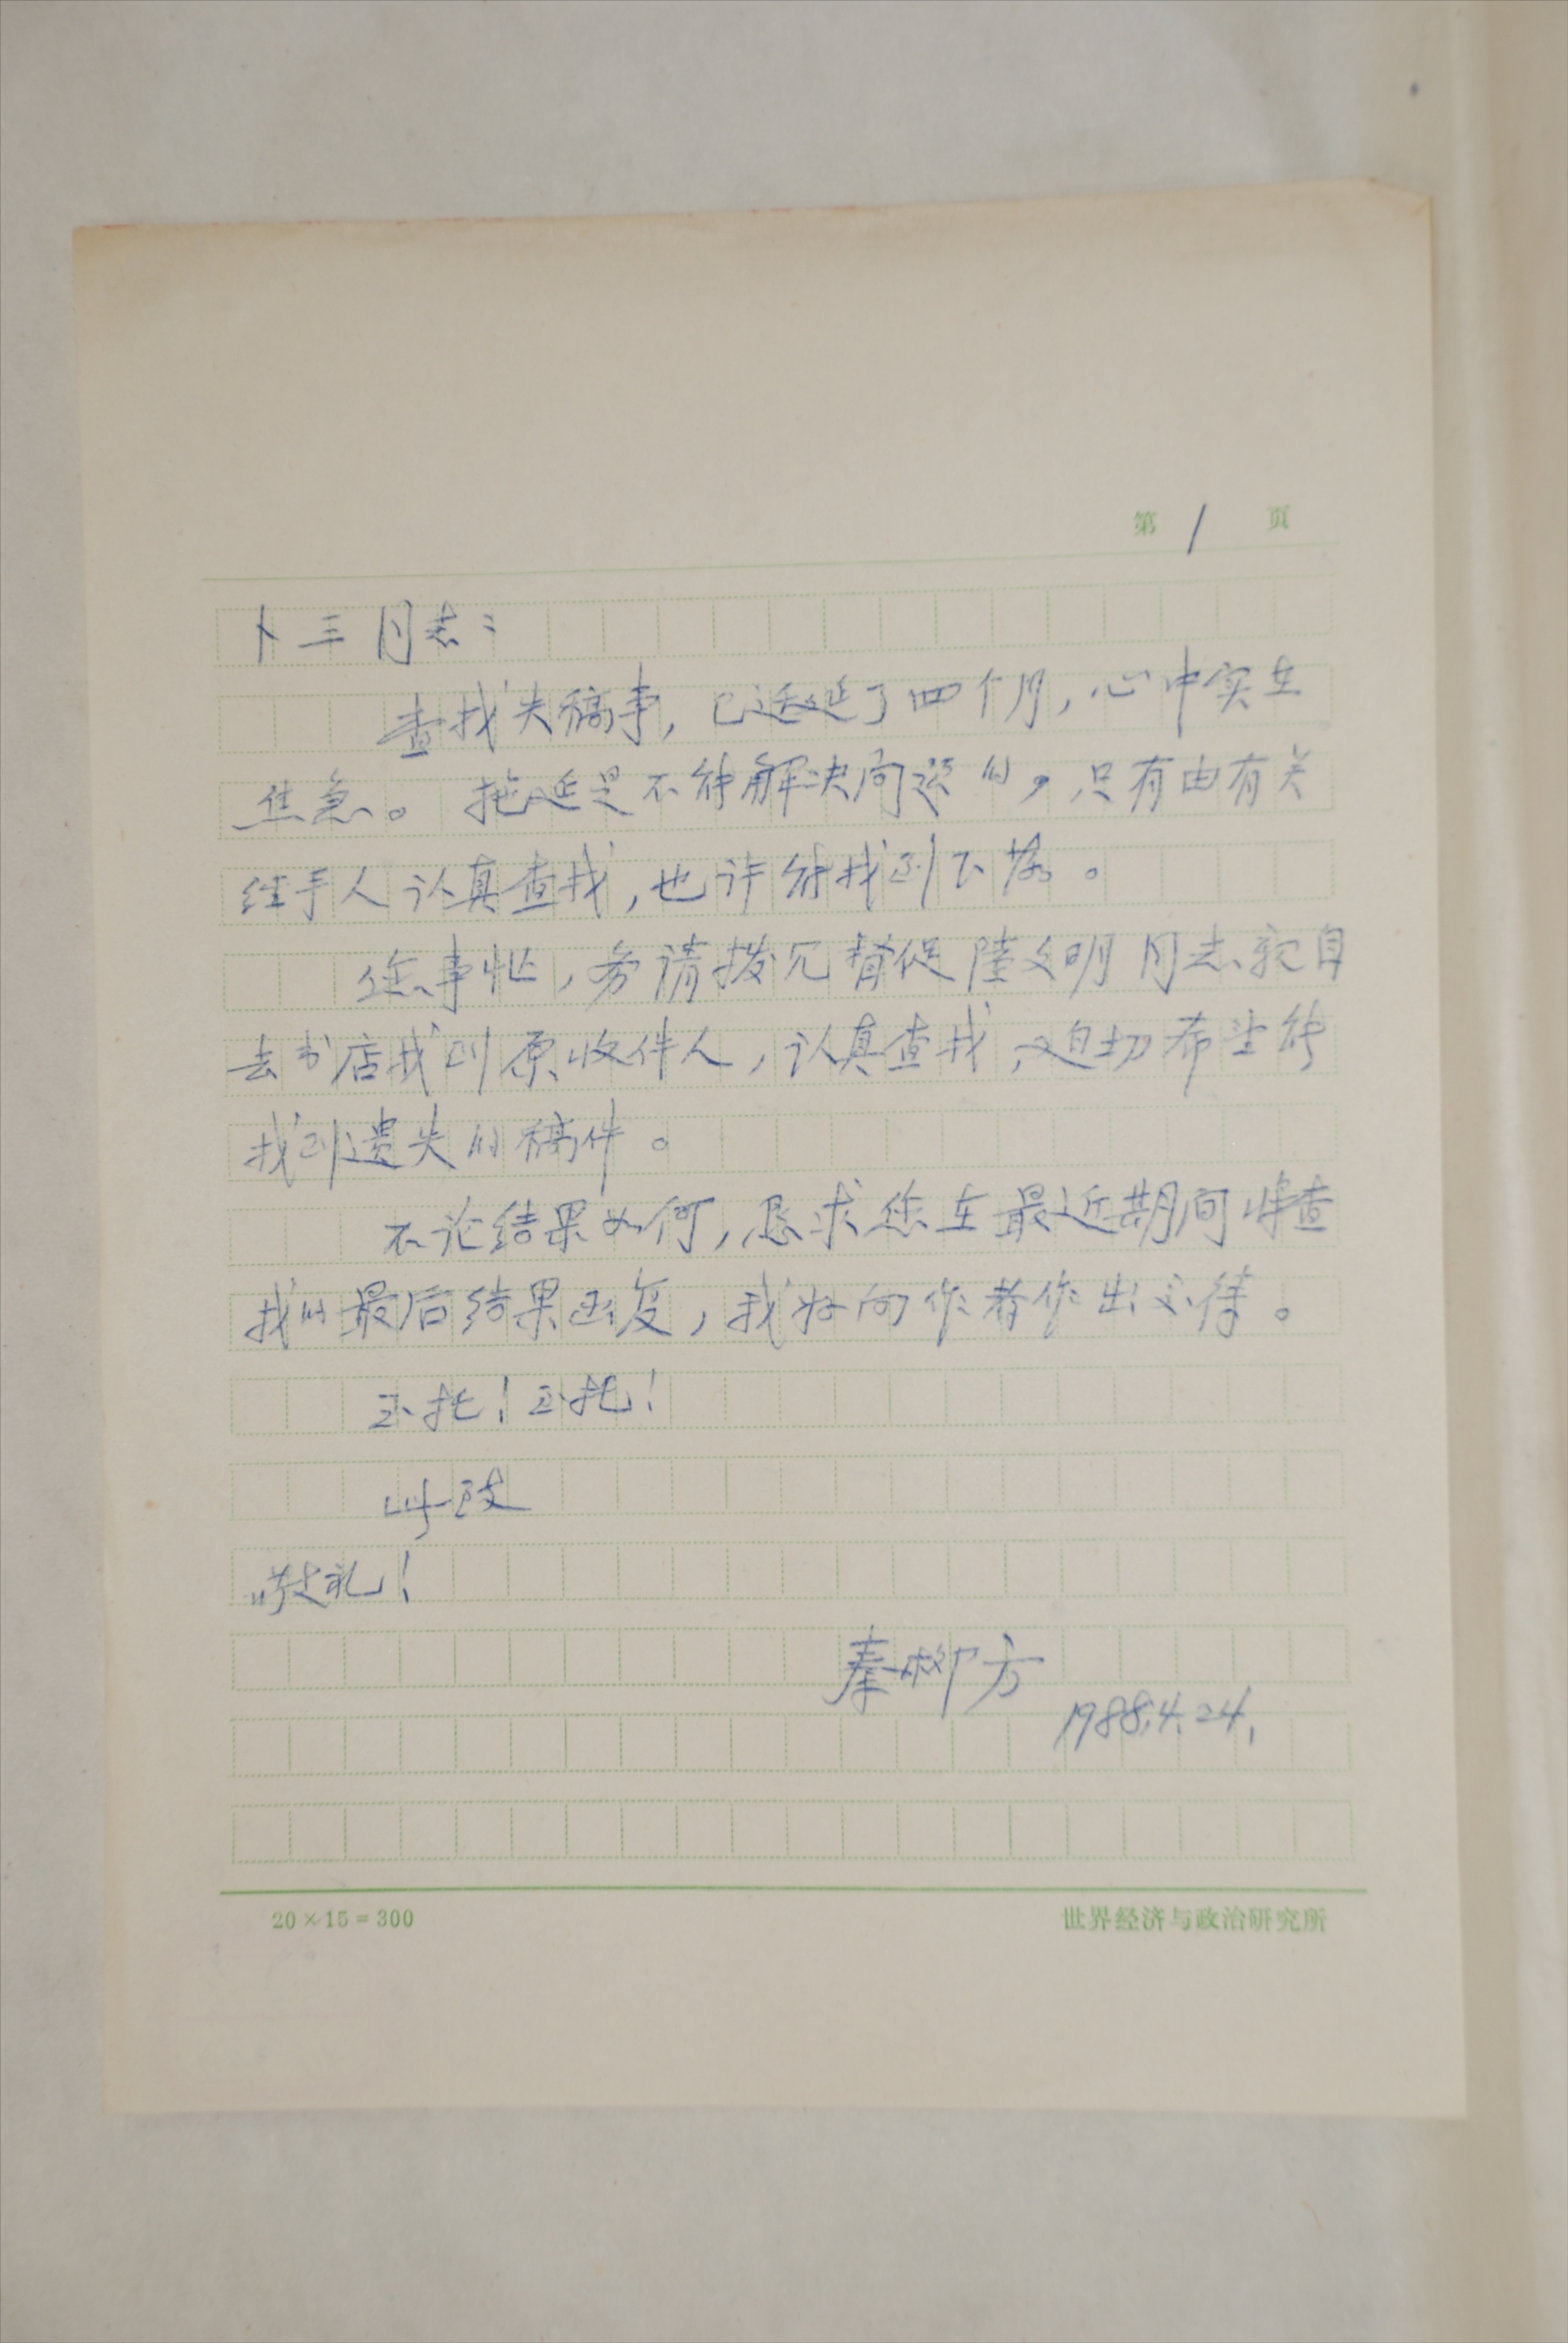 第 1 页
卜三同志：
查找失稿事，已迁延了四个月，心中实在
焦急。拖延是不能解决问题的，只有由有关
经手人认真查找，也许能找到下落。
您事忙，务请拨冗督促陆文明同志亲自
去书店找到原收件人，认真查找，迫切希望能
找到遗失的稿件。
不论结果如何，恳求您在最近期间将查
找的最后结果函复，我好向作者作出交待。
至托！至托！
此致
敬礼！
秦柳方
1988.4.24.
20×15=300
世界经济与政治研究所